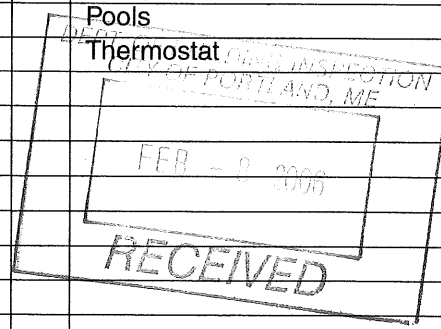 Pools
Thermostat
DEPT. OF BUILDING INSPECTION
CITY OF PORTLAND, ME
FEB - 8 2006
RECEIVED